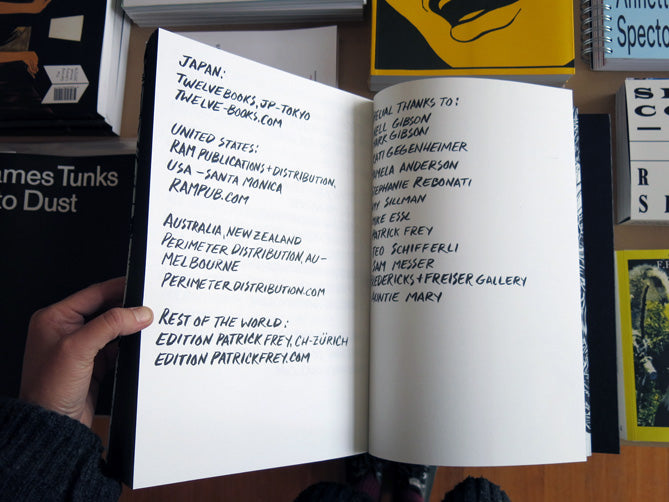 JAPAN:
TWELVEBOOKS, JP-TOKYO
TWELVE-BOOKS.COM
UNITED STATES:
RAM PUBLICATIONS+DISTRIBUTION,
USA-SANTA MONICA
RAMPUB.COM
AUSTRALIA, NEW ZEALAND
PERIMETER DISTRIBUTION, AU-
MELBOURNE
PERIMETERDISTRIBUTION.COM
REST OF THE WORLD:
EDITION PATRICK FREY, CH-ZÜRICH
EDITIONPATRICKFREY.COM
PECIAL THANKS TO:
ELL GIBSON
ARK GIBSON
ATI GEGENHEIMER
AMELA ANDERSON
STEPHANIE REBONATI
MY SILLMAN
MIKE ESSL
PATRICK FREY
TEO SCHIFFERLI
SAM MESSER
REDERICKS+FREISER GALLERY
AUNTIE MARY
ames Tunks
to Dust
Annett
Specto